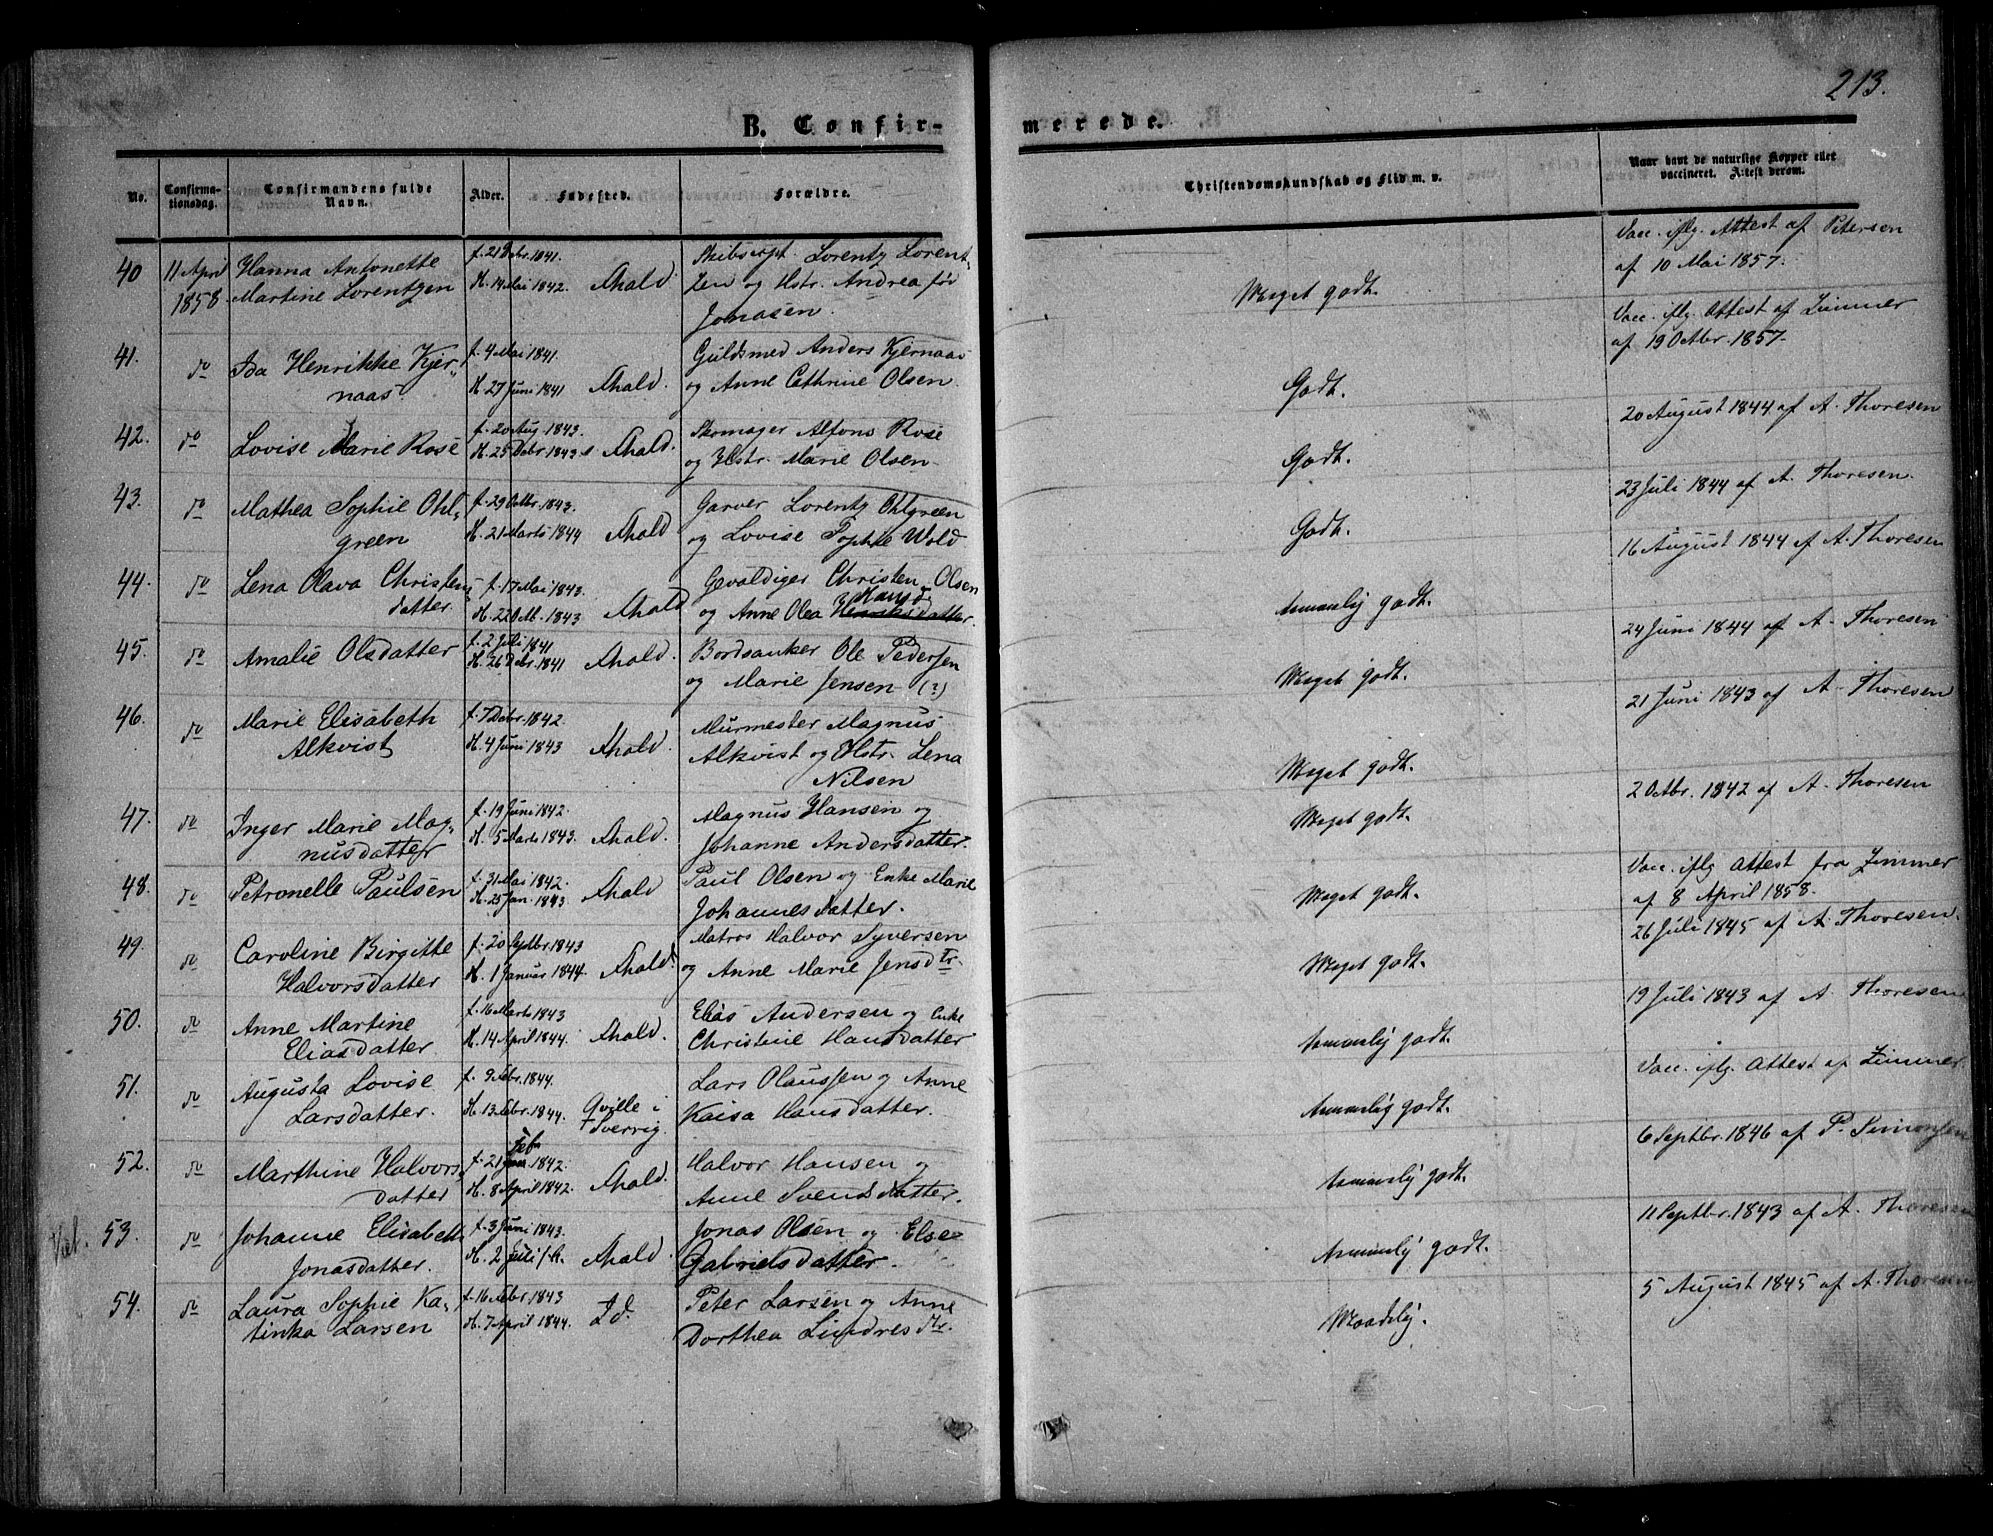 213.
B. Confir-
merede.
No.
Confirma-
tionsdag.
Confirmandens fulde
Navn.
Alder.
Fødested.
Forældre.
Christendomskundskab og Flid m. v.
Naar havt de naturlige Kopper eller
vaccineret. Attest derom.
40
11 April
1858.
Hanna Antonette
Martine Lorentzen
f. 21 Dcbr. 1841.
H. 14 Mai 1842.
Fhald.
Skibscapt. Lorentz Lorent-
zen og Hstr. Andrea før
Jonasen.
Meget godt.
Vacc. iflg. Attest af Petersen
af 10 Mai 1857.
41.
do
Ida Henrikke Kjer-
naas.
f. 4 Mai 1841.
H. 27 Juni 1841
Fhald.
Guldsmed Anders Kjernaas
og Anne Cathrine Olsen.
Godt.
Vacc. iflg. Attest af Zimmer
af 19 Octbr. 1857.
42.
do
Lovise Marie Rosé
f. 20 Aug. 1843.
H. 25 Dcbr. 1843
Fhald.
Skomager Alfons Rosé
og Hstr. Marie Olsen.
Godt.
20 August 1844 af A. Thoresen
43.
do
Mathea Sophie Ohl-
green
f. 29 Octbr. 1843.
H. 21 Marts 1844
Fhald
Garver Lorentz Ohlgreen
og Lovise Sophie Wold
Godt.
23 Juli 1844 af A. Thoresen.
44.
do
Lena Olava Christens-
datter.
f. 17 Mai 1843.
H. 22 Oct. 1843
Fhald
Gevaldiger Christen Olsen
og Anne Olea Hansd.
Temmelig godt.
16 August 1844 af A. Thoresen
45.
do
Amalie Olsdatter
f. 2 Juli 1841
H. 26 Dcbr. 1841
Fhald.
Bordsanker Ole Pedersen
og Marie Jensen (?)
Meget godt.
24 Juni 1844 af A. Thoresen
46.
do
Marie Elisabeth
Alkvist
f. 7 Dcbr. 1842
H. 4 Juni 1843
Fhald.
Murmester Magnus
Alkvist og Hstr. Lena
Nilsen
Meget godt.
21 Juni 1843 af A. Thoresen
47.
do
Inger Marie Mag-
nusdatter
f. 19 Juni 1842.
H. 5 Marts 1843.
Fhald.
Magnus Hansen og
Johanne Andersdatter.
Meget godt.
2 Octbr. 1842 af A. Thoresen
48.
do
Petronelle Paulsen
f. 31 Mai 1842.
H. 25 Jan. 1843
Fhald
Paul Olsen og Enke Marie
Johannesdatter.
Meget godt.
Vacc. iflg Attest fra Zimmer
af 8 April 1858.
49.
do
Caroline Birgitte
Halvorsdatter
f. 20 Septbr. 1843
H. 1 Januar 1844.
Fhald.
Matros Halvor Syversen
og Anne Marie Jensdtr.
Meget godt.
26 Juli 1845 af A. Thoresen.
50.
do
Anne Martine
Eliasdatter
f. 16 Marts 1843
H. 14 April 1844.
Fhald.
Elias Andersen og Enke
Christine Hansdatter
Temmelig godt.
19 Juli 1843 af A. Thoresen
51.
do
Augusta Lovise
Larsdatter.
f. 9 Febr. 1844.
H 13 Febr. 1844.
Qville i
Sverrig.
Lars Olaussen og Anne
Kaisa Hansdatter.
Temmelig godt.
Vacc. iflg. Attest af Zimmer.
52.
do
Marthine Halvors-
datter
f. 21 Febr. 1842.
H. 8 April 1842.
Fhald.
Halvor Hansen og
Anne Svendsdatter.
Temmelig godt.
6 Septbr. 1846 af P. Simonsen
53.
do
Johanne Elisabeth
Jonasdatter.
f. 3 Juni 1843.
H. 2 Juli s. A.
Fhald.
Jonas Olsen og Else
Gabrielsdatter.
Temmelig godt.
11 Septbr. 1843 af A. Thoresen
54.
do
Laura Sophie Ka-
tinka Larsen
f. 16 Febr. 1843
H. 7 April 1844.
Id.
Peter Larsen og Anne
Dorthea Lindresdtr.
Maadelig.
5 August 1845 af A. Thoresen